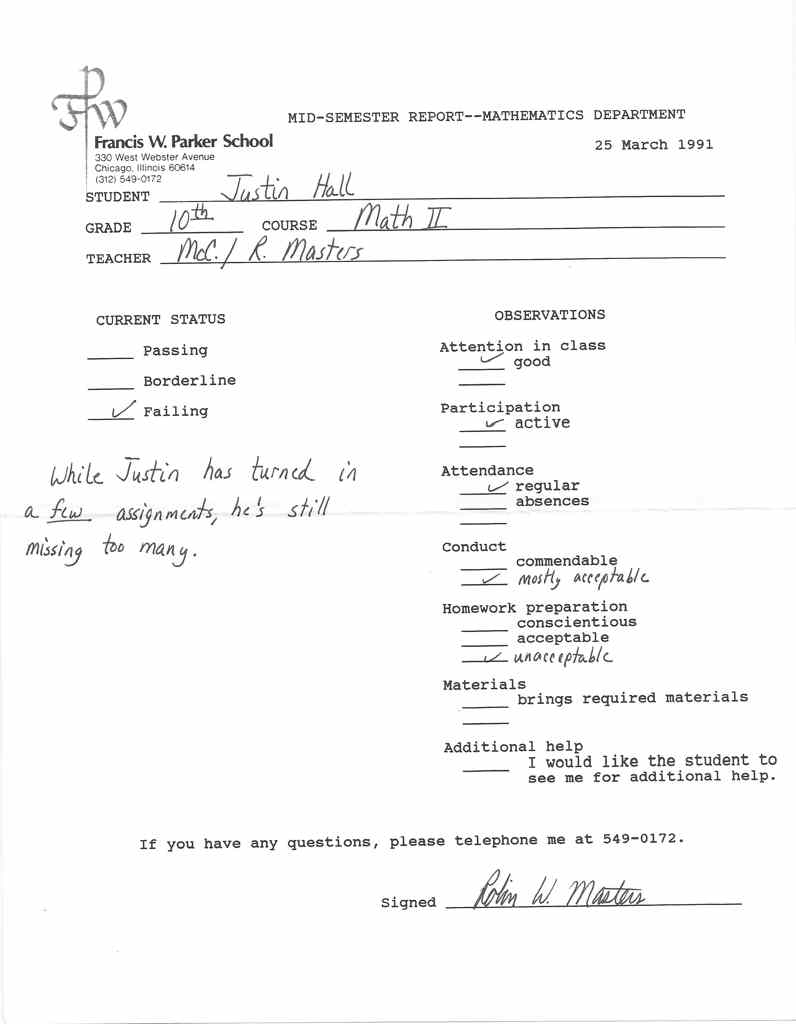 FWP
MID-SEMESTER REPORT--MATHEMATICS DEPARTMENT
Francis W. Parker School
25 March 1991
330 West Webster Avenue
Chicago, Illinois 60614
(312) 549-0172
STUDENT Justin Hall
GRADE 10th COURSE Math II
TEACHER McC. / R. Masters
CURRENT STATUS
Passing
Borderline
✓ Failing
While Justin has turned in
a few assignments, he's still
missing too many.
OBSERVATIONS
Attention in class
✓ good
Participation
✓ active
Attendance
✓ regular
absences
Conduct
commendable
✓ mostly acceptable
Homework preparation
conscientious
acceptable
✓ unacceptable
Materials
brings required materials
Additional help
I would like the student to
see me for additional help.
If you have any questions, please telephone me at 549-0172.
Signed Robin W. Masters